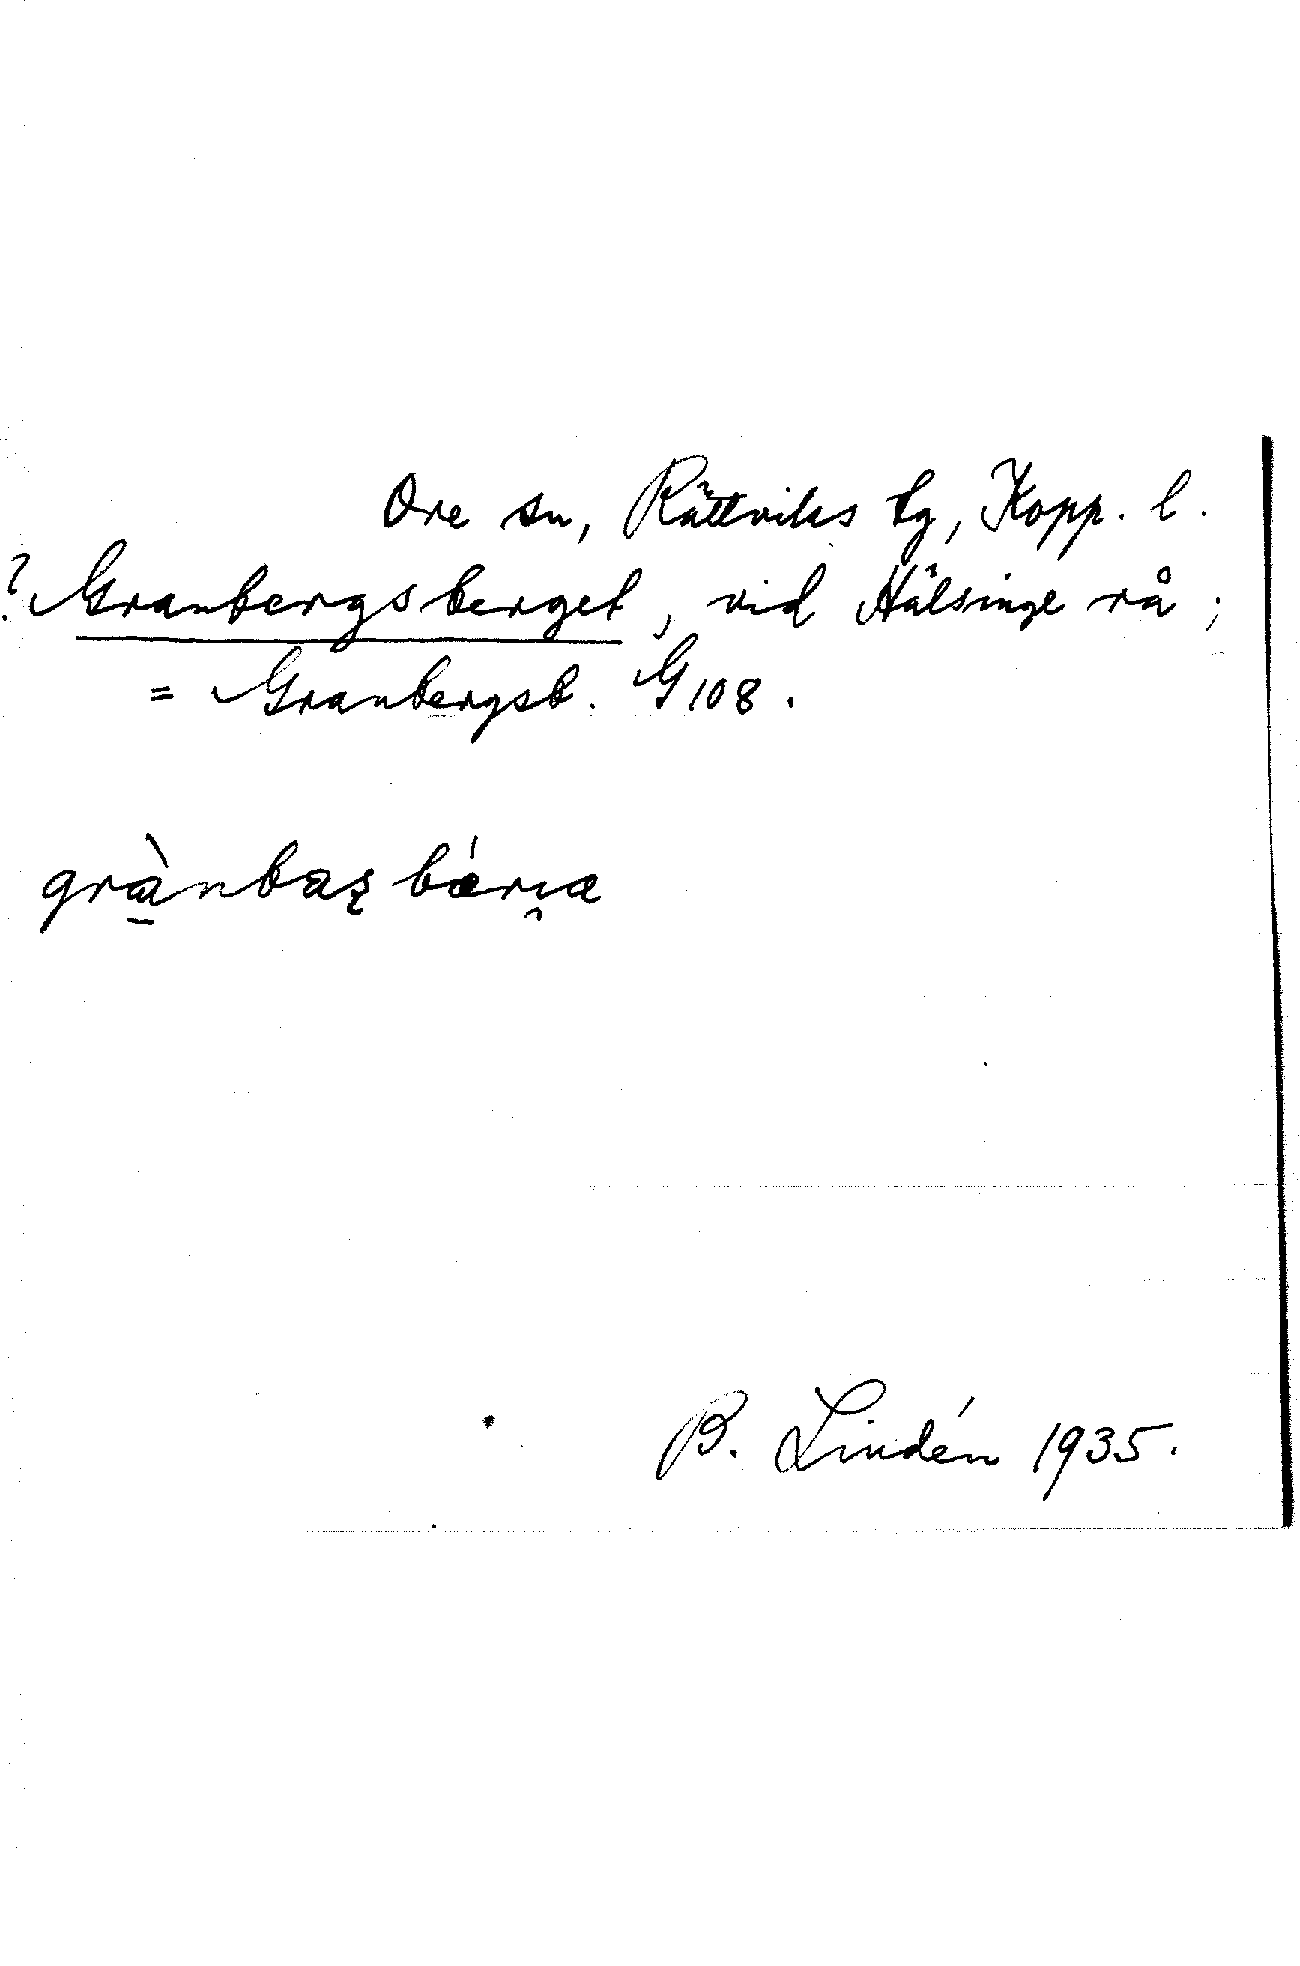 Ore sn, Rättviks tg, Kopp. l.
? Granbergsberget, vid Hälsinge rå;
= Granbergsb. G108.
grànbæʂ bǽri̯æ
B. Lindén 1935.